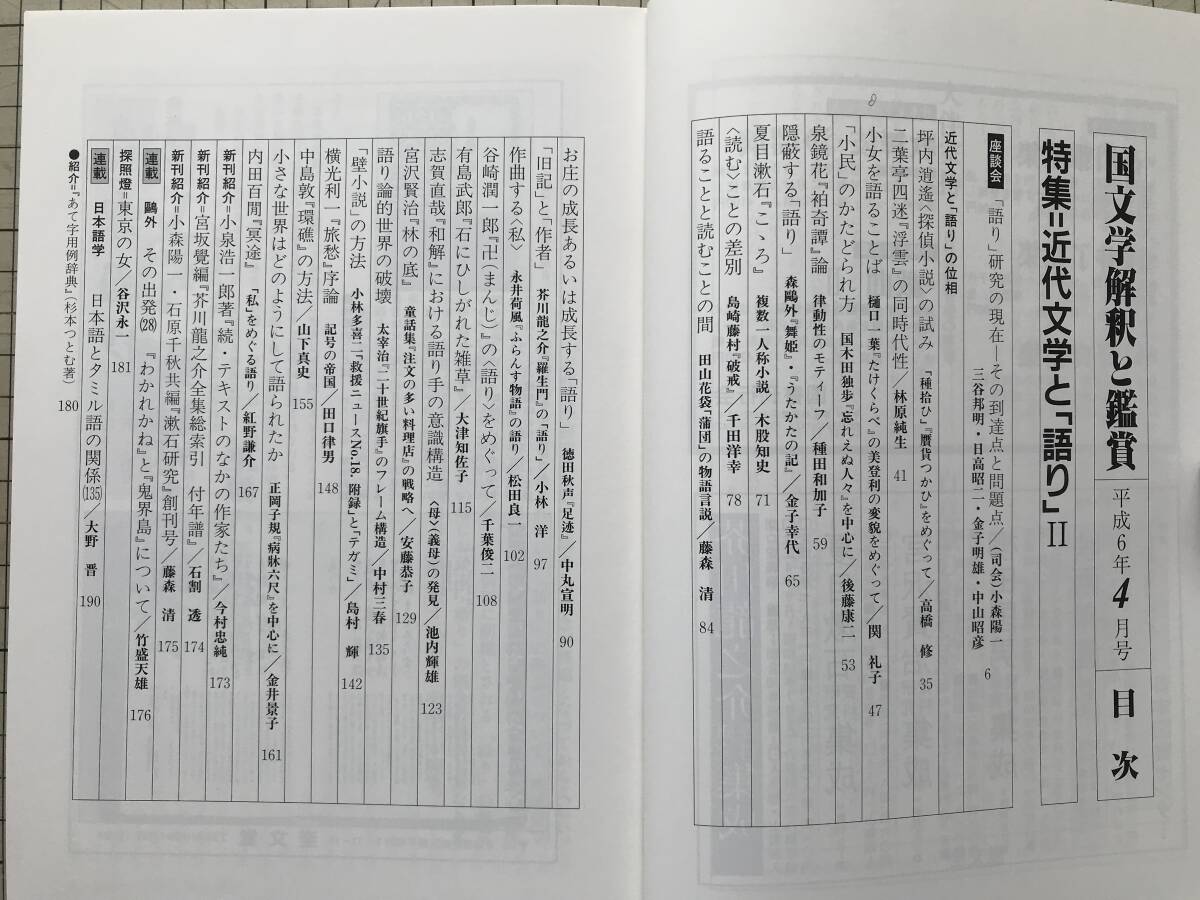 国文学解釈と鑑賞 平成6年4月号 目次
特集=近代文学と「語り」Ⅱ
座談会 「語り」研究の現在―その到達点と問題点/(司会)小森陽一
三谷邦明・日高昭二・金子明雄・中山昭彦 6
近代文学と「語り」の位相
坪内逍遙〈探偵小説〉の試み 「種拾ひ」『贋貨つかひ』をめぐって/高橋 修 35
二葉亭四迷『浮雲』の同時代性/林原純生 41
小女を語ることば 樋口一葉『たけくらべ』の美登利の変貌をめぐって/関 礼子 47
「小民」のかたどられ方 国木田独歩『忘れえぬ人々』を中心に/後藤康二 53
泉鏡花『袙奇譚』論 律動性のモティーフ/種田和加子 59
隠蔽する「語り」 森鷗外『舞姫』・『うたかたの記』/金子幸代 65
夏目漱石『こゝろ』 複数一人称小説/木股知史 71
〈読む〉ことの差別 島崎藤村『破戒』/千田洋幸 78
語ることと読むことの間 田山花袋「蒲団」の物語言説/藤森 清 84
お庄の成長あるいは成長する「語り」 徳田秋声『足迹』/中丸宣明 90
「旧記」と「作者」 芥川龍之介『羅生門』の「語り」/小林 洋 97
作曲する〈私〉 永井荷風『ふらんす物語』の語り/松田良一 102
谷崎潤一郎『卍(まんじ)』の〈語り〉をめぐって/千葉俊二 108
有島武郎『石にひしがれた雑草』/大津知佐子 115
志賀直哉『和解』における語り手の意識構造 〈母〉〈義母〉の発見/池内輝雄 123
宮沢賢治『林の底』 童話集『注文の多い料理店』の戦略へ/安藤恭子 129
語り論的世界の破壊 太宰治『二十世紀旗手』のフレーム構造/中村三春 135
「壁小説」の方法 小林多喜二『救援ニュースNo.18.附録』と「テガミ」/島村 輝 142
横光利一『旅愁』序論 記号の帝国/田口律男 148
中島敦『環礁』の方法/山下真史 155
小さな世界はどのようにして語られたか 正岡子規『病牀六尺』を中心に/金井景子 161
内田百閒『冥途』 「私」をめぐる語り/紅野謙介 167
新刊紹介=小泉浩一郎著『続・テキストのなかの作家たち』/今村忠純 173
新刊紹介=宮坂覺編『芥川龍之介全集総索引 付年譜』/石割 透 174
新刊紹介=小森陽一・石原千秋共編『漱石研究』創刊号/藤森 清 175
連載 鷗外 その出発(28) 『わかれかね』と『鬼界島』について/竹盛天雄 176
探照燈=東京の女/谷沢永一 181
連載 日本語学 日本語とタミル語の関係(135)/大野 晋 190
●紹介=『あて字用例辞典』(杉本つとむ著) 180